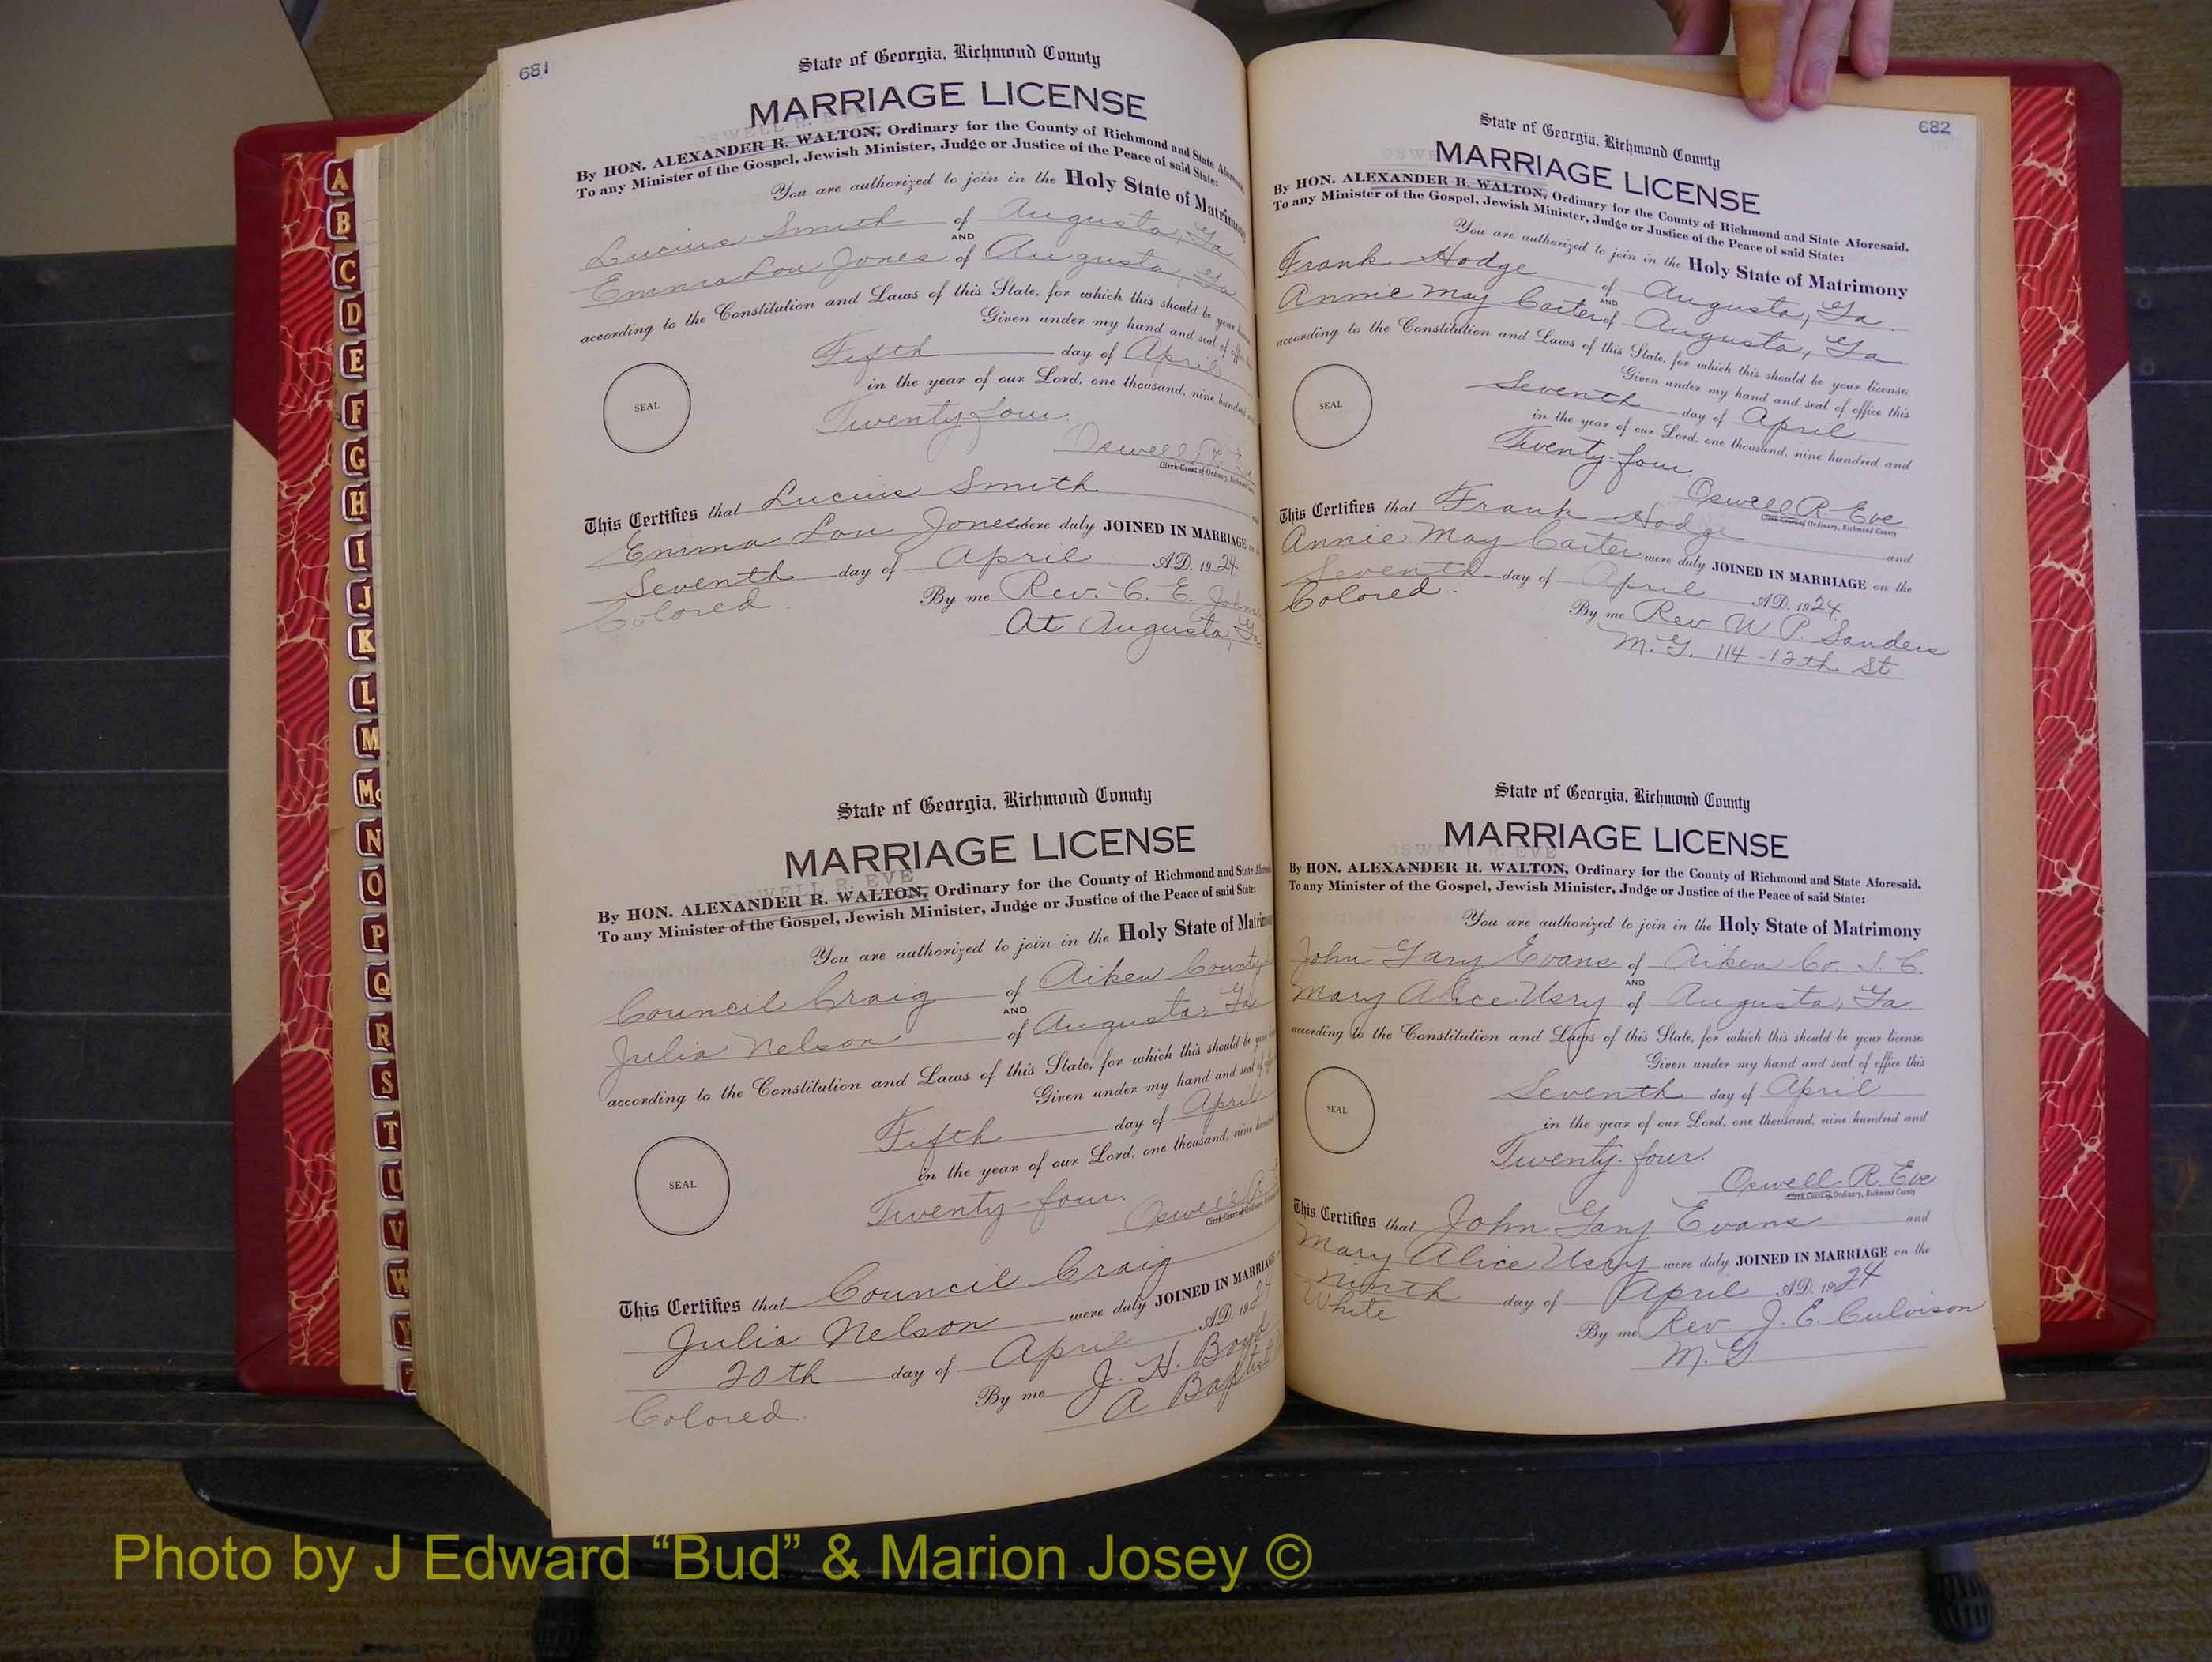 681
State of Georgia, Richmond County
MARRIAGE LICENSE
OSWELL R. EVE
By HON. ALEXANDER R. WALTON, Ordinary for the County of Richmond and State Aforesaid.
To any Minister of the Gospel, Jewish Minister, Judge or Justice of the Peace of said State:
You are authorized to join in the Holy State of Matrimony
Lucius Smith of Augusta, Ga
AND
Emma Lou Jones of Augusta, Ga
according to the Constitution and Laws of this State, for which this should be your
Given under my hand and seal of office
Fifth day of April
in the year of our Lord, one thousand, nine hundred
SEAL
Twenty-four
Oswell R.
Clerk Court of Ordinary,
This Certifies that Lucius Smith
Emma Lou Jones were duly JOINED IN MARRIAGE
Seventh day of April A.D. 1924
Colored By me Rev. C. E.
At Augusta, Ga
State of Georgia, Richmond County
MARRIAGE LICENSE
OSWELL R. EVE
By HON. ALEXANDER R. WALTON, Ordinary for the County of Richmond and State
To any Minister of the Gospel, Jewish Minister, Judge or Justice of the Peace of said State:
You are authorized to join in the Holy State of Matrimony
Council Craig of Aiken County
AND
Julia Nelson of Augusta, Ga
according to the Constitution and Laws of this State, for which this should be your
Given under my hand and seal of
Fifth day of April
in the year of our Lord, one thousand, nine hundred
SEAL
Twenty-four.
Oswell R.
Clerk Court of Ordinary,
This Certifies that Council Craig
Julia Nelson were duly JOINED IN MARRIAGE
20th day of April A.D. 1924
Colored By me J. H. Boyd
A Baptist
682
State of Georgia, Richmond County
MARRIAGE LICENSE
By HON. ALEXANDER R. WALTON, Ordinary for the County of Richmond and State Aforesaid.
To any Minister of the Gospel, Jewish Minister, Judge or Justice of the Peace of said State:
You are authorized to join in the Holy State of Matrimony
Frank Hodge of Augusta, Ga
AND
Annie May Carter of Augusta, Ga
according to the Constitution and Laws of this State, for which this should be your license:
Given under my hand and seal of office this
Seventh day of April
in the year of our Lord, one thousand, nine hundred and
SEAL
Twenty-four
Oswell R. Eve
Clerk Court of Ordinary, Richmond County
This Certifies that Frank Hodge and
Annie May Carter were duly JOINED IN MARRIAGE on the
Seventh day of April A.D. 1924
Colored. By me Rev. W. P. Sanders
M. G. 114-12th St
State of Georgia, Richmond County
MARRIAGE LICENSE
OSWELL R. EVE
By HON. ALEXANDER R. WALTON, Ordinary for the County of Richmond and State Aforesaid.
To any Minister of the Gospel, Jewish Minister, Judge or Justice of the Peace of said State:
You are authorized to join in the Holy State of Matrimony
John Gary Evans of Aiken Co. S. C.
AND
Mary Alice Usry of Augusta, Ga.
according to the Constitution and Laws of this State, for which this should be your license:
Given under my hand and seal of office this
Seventh day of April
in the year of our Lord, one thousand, nine hundred and
SEAL
Twenty-four.
Oswell R. Eve
Clerk Court of Ordinary, Richmond County
This Certifies that John Gary Evans and
Mary Alice Usry were duly JOINED IN MARRIAGE on the
Ninth day of April A.D. 1924
White By me Rev. J. E. Culvison
M. G.
A
B
C
D
E
F
G
H
I
J
K
L
M
Mc
N
O
P
Q
R
S
T
U
V
W
Y
Z
Photo by J Edward “Bud” & Marion Josey ©